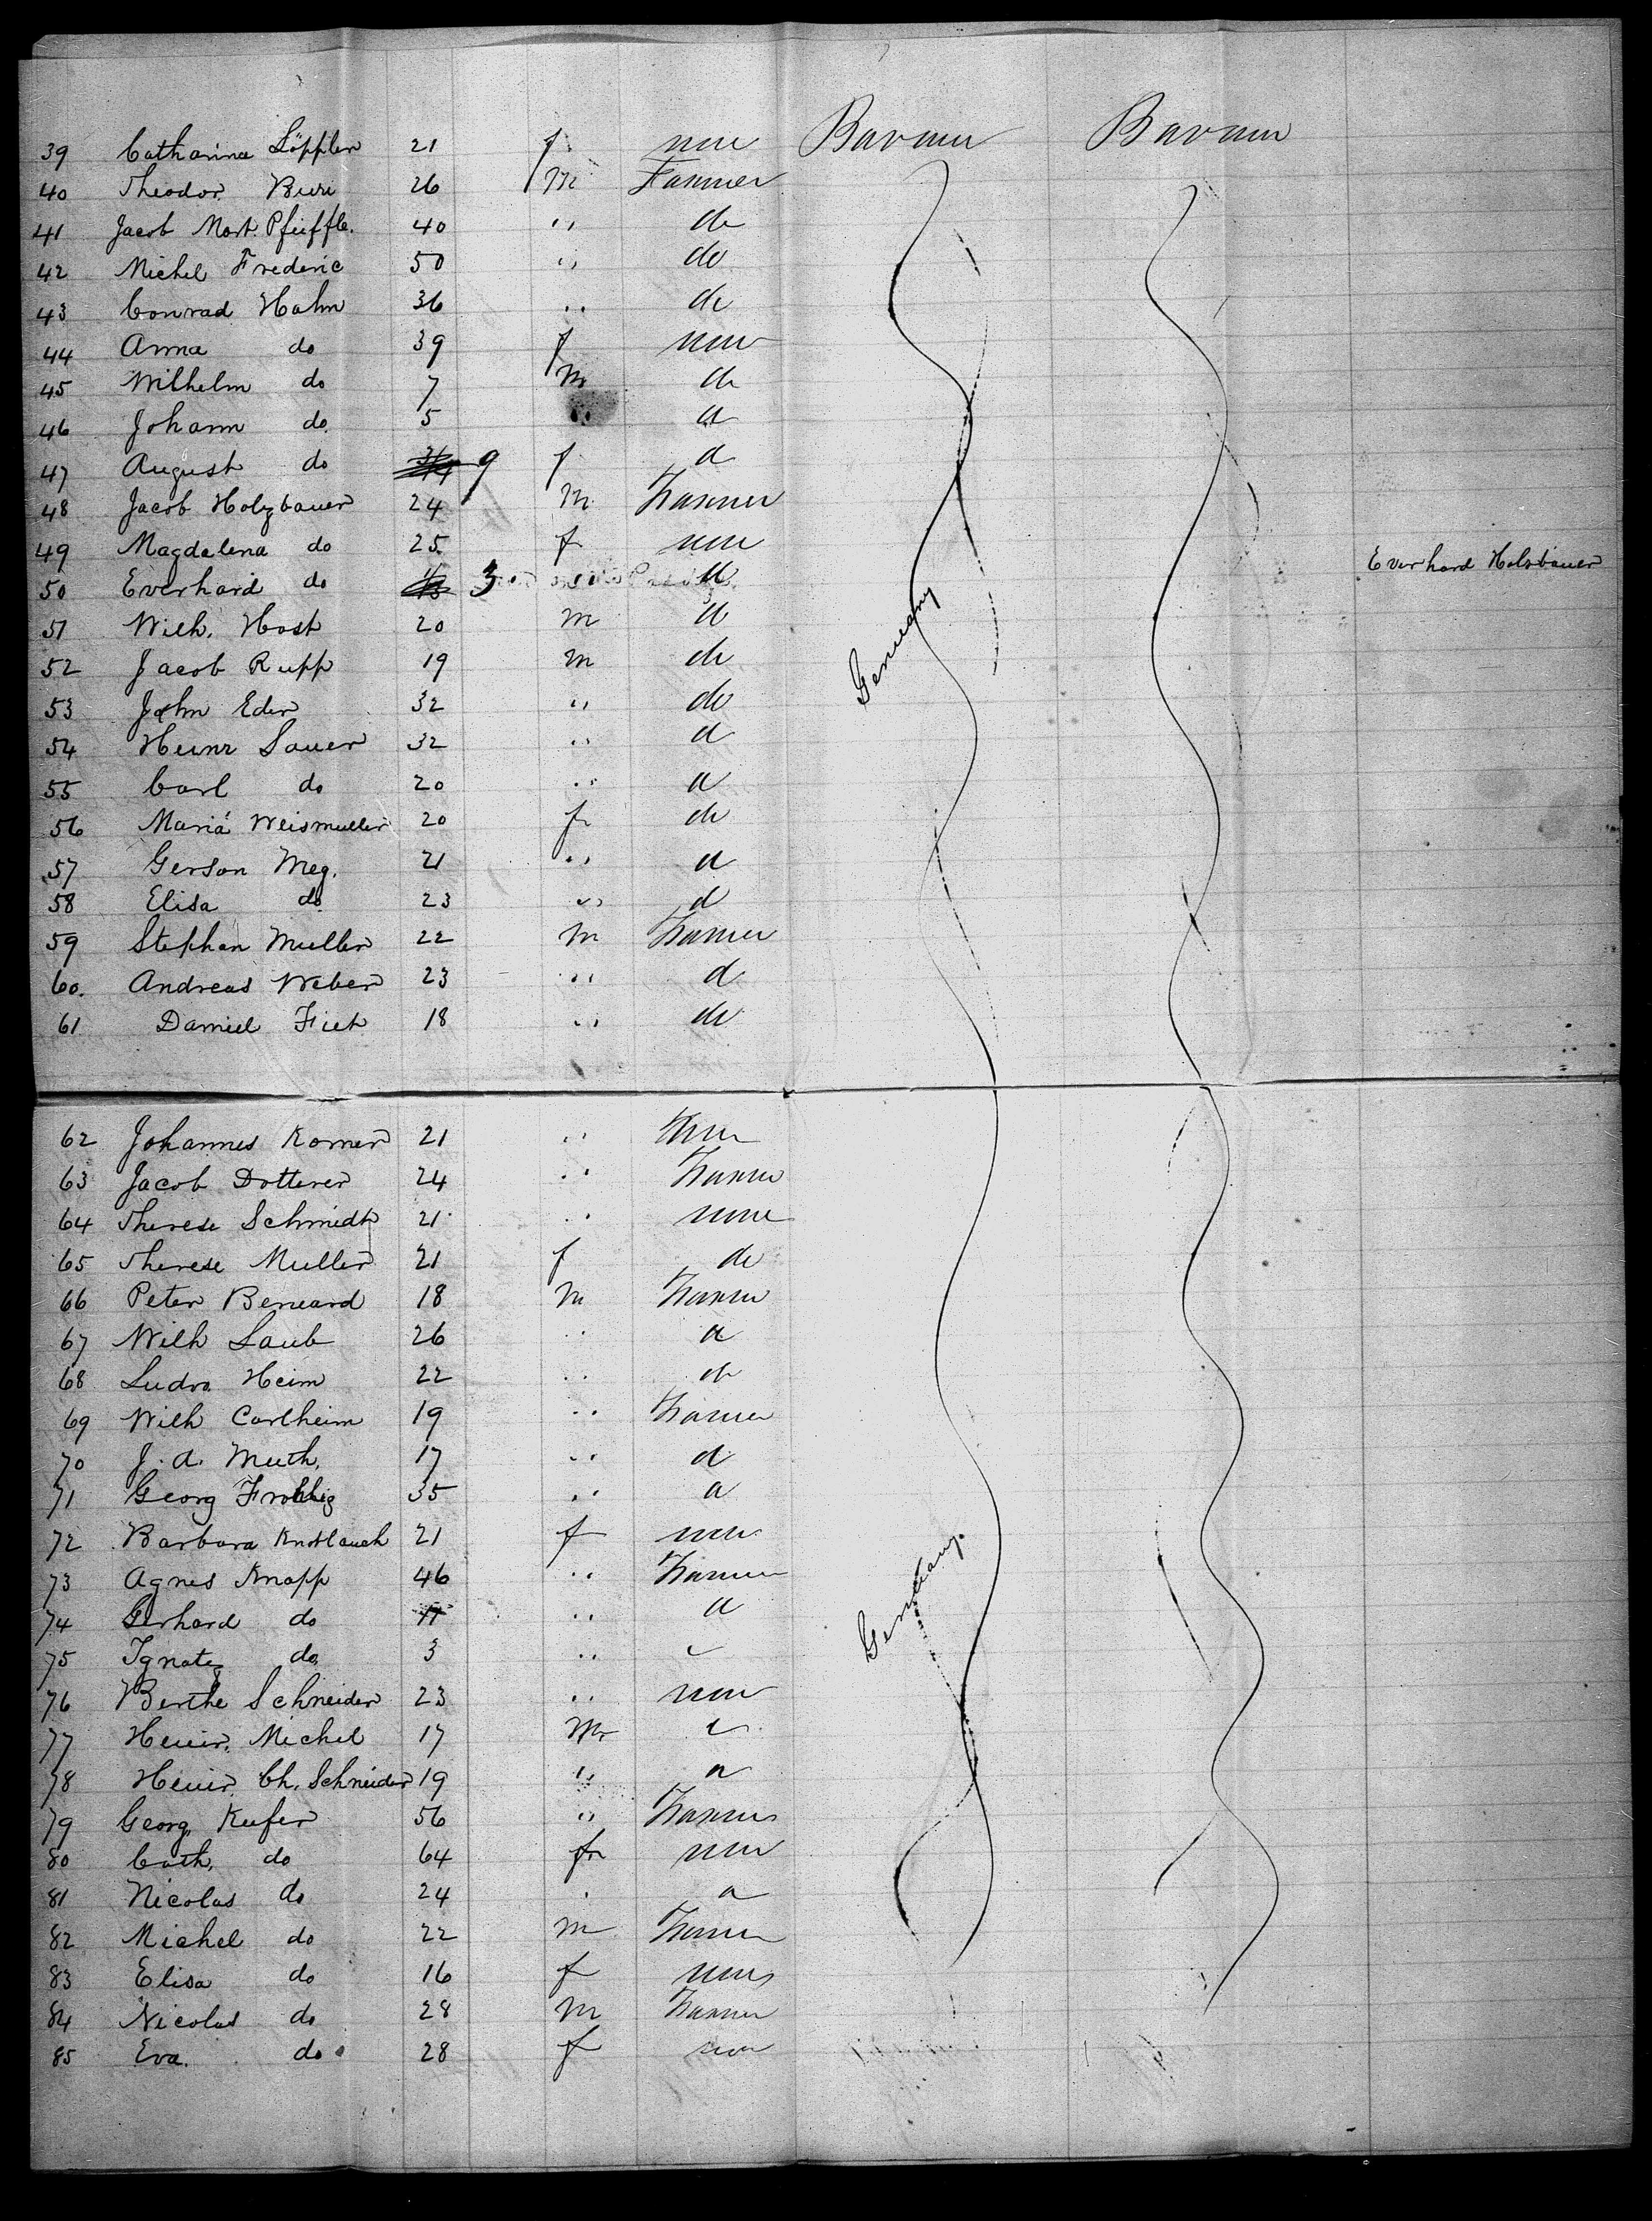 39 Catharina Löppler 21 f. none Bavaria Bavaria
40 Theodor. Buri 26 m Farmer
41 Jacob Mart. Pfeiffle. 40 " do
42 Michel Frederic 50 " do
43 Conrad Hahn 36 " do
44 Anna do 39 f none
45 Wilhelm do 7 m do
46 Johann do. 5 " do
47 August do 9 f do
48 Jacob Holzbauer 24 m. Farmer
49 Magdalena do 25. f none
50 Everhard do 3 do Everhard Holzbauer
51 Wilh. Host 20 m do
52 Jacob Rupp 19 m do
53 John Eder 32 " do
54 Heinr Sauer 32 " do
55 Carl do 20 " do
56 Maria Weismuller 20 f do
57 Gerson Meg. 21 " do
58 Elisa do 23 " do
59 Stephan Muller 22 m Farmer
60. Andreas Weber 23 " do
61 Daniel Fiet 18 " do
Germany
62 Johannes Korner 21 "
63 Jacob Dotterer 24 " Farmer
64 Therese Schmidt 21 " none
65 Therese Muller 21 f do
66 Peter Beneard 18 m Farmer
67 Wilh Laub 26 " do
68 Ludw. Heim 22 " do
69 Wilh Carlheim 19 " Farmer
70 J. A. Muth. 17 " do
71 Georg Frohlig 35 " do
72 Barbara Knoblauch 21 f none
73 Agnes Knapp 46 " Farmer
74 Gerhard do 11 " do
75 Ignatz do 3 "
76 Berthe Schneider 23 " none
77 Heinr. Michel 17 m
78 Heinr. Ch. Schneider 19 " do
79 Georg Kufer 56 " Farmer
80 Cath. do 64 f none
81 Nicolas do 24 do
82 Michel do 22 m Farmer
83 Elisa do 16 f none
84 Nicolas do 28 m Farmer
85 Eva. do 28 f none
Germany.